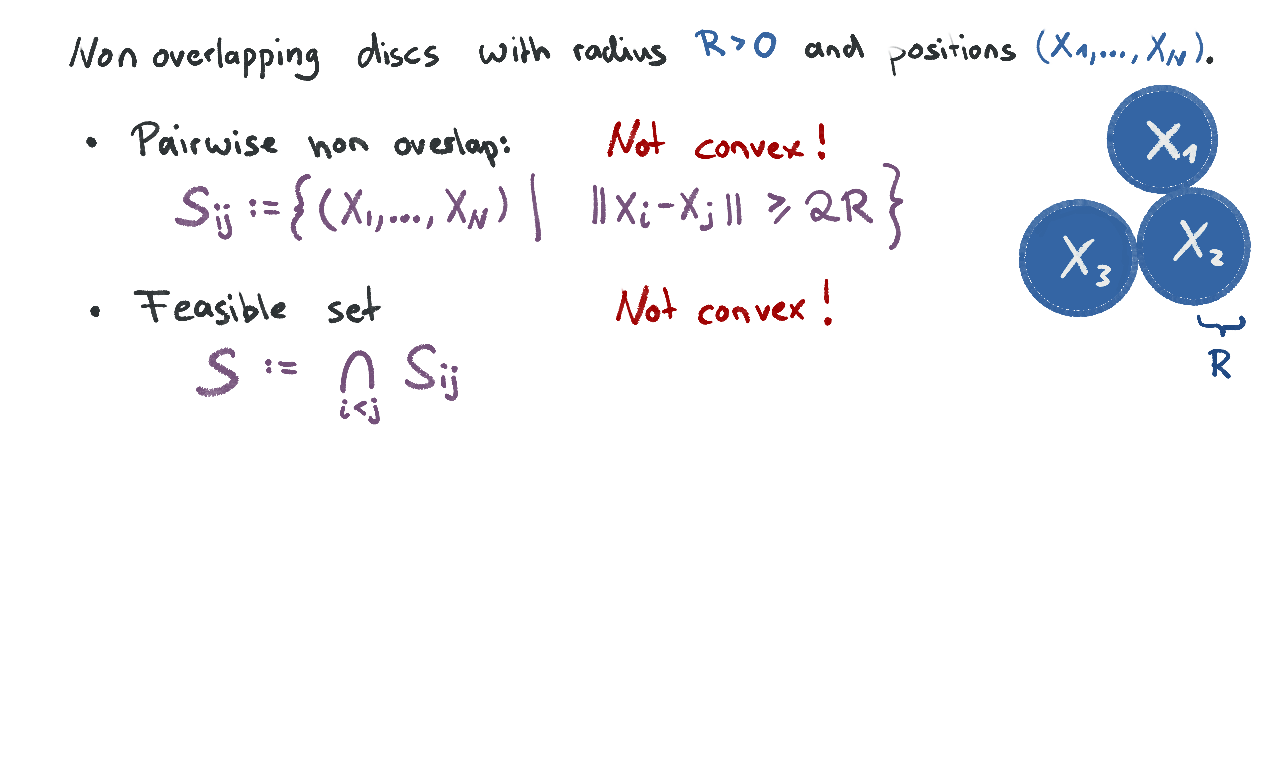 Non overlapping discs with radius R>0 and positions (X₁,...,X_N).
• Pairwise non overlap: Not convex!
S_ij := {(X₁,..., X_N) | ||X_i-X_j|| ⩾ 2R}
• Feasible set Not convex!
S := ∩_{i<j} S_ij
X₁
X₂
X₃
R